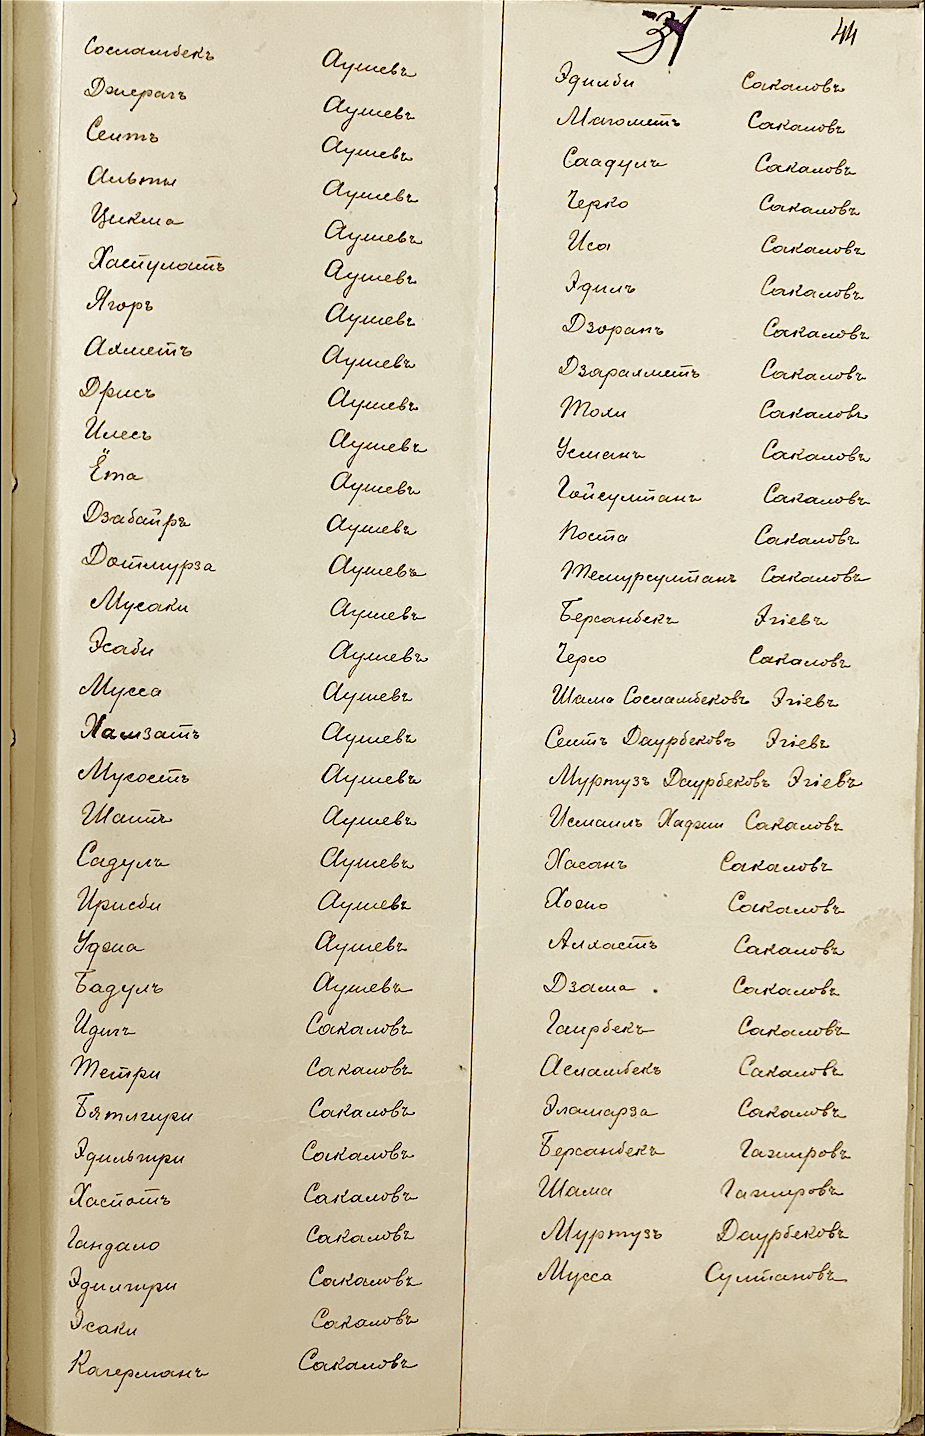 Сосламбекъ Аушевъ
Джерагъ Аушевъ
Сеитъ Аушевъ
Альты Аушевъ
Цикма Аушевъ
Хаспулатъ Аушевъ
Ягоръ Аушевъ
Ахметъ Аушевъ
Дрисъ Аушевъ
Илесъ Аушевъ
Ёта Аушевъ
Дзабаиръ Аушевъ
Дотмурза Аушевъ
Мусаки Аушевъ
Эсаби Аушевъ
Мусса Аушевъ
Хамзатъ Аушевъ
Мусостъ Аушевъ
Шаитъ Аушевъ
Садулъ Аушевъ
Ирисби Аушевъ
Уджа Аушевъ
Бадулъ Аушевъ
Идигъ Сакаловъ
Тетри Сакаловъ
Бятлгири Сакаловъ
Эдильгири Сакаловъ
Хаспотъ Сакаловъ
Гандало Сакаловъ
Эдилгири Сакаловъ
Эсаки Сакаловъ
Кагерманъ Сакаловъ
31 44
Эдилби Сакаловъ
Магометъ Сакаловъ
Саадулъ Сакаловъ
Черко Сакаловъ
Иса Сакаловъ
Эдилъ Сакаловъ
Дзоранъ Сакаловъ
Дзарахметъ Сакаловъ
Тохи Сакаловъ
Усманъ Сакаловъ
Гойсултанъ Сакаловъ
Поста Сакаловъ
Темурсултанъ Сакаловъ
Берсанбекъ Эгіевъ
Черсо Сакаловъ
Шама Сосламбековъ Эгіевъ
Сеитъ Даурбековъ Эгіевъ
Муртузъ Даурбековъ Эгіевъ
Исмаилъ Хаджи Сакаловъ
Хасанъ Сакаловъ
Хожо Сакаловъ
Алхастъ Сакаловъ
Дзама Сакаловъ
Гаирбекъ Сакаловъ
Асламбекъ Сакаловъ
Эламарза Сакаловъ
Берсанбекъ Гагировъ
Шама Гагировъ
Муртузъ Даурбековъ
Мусса Султановъ